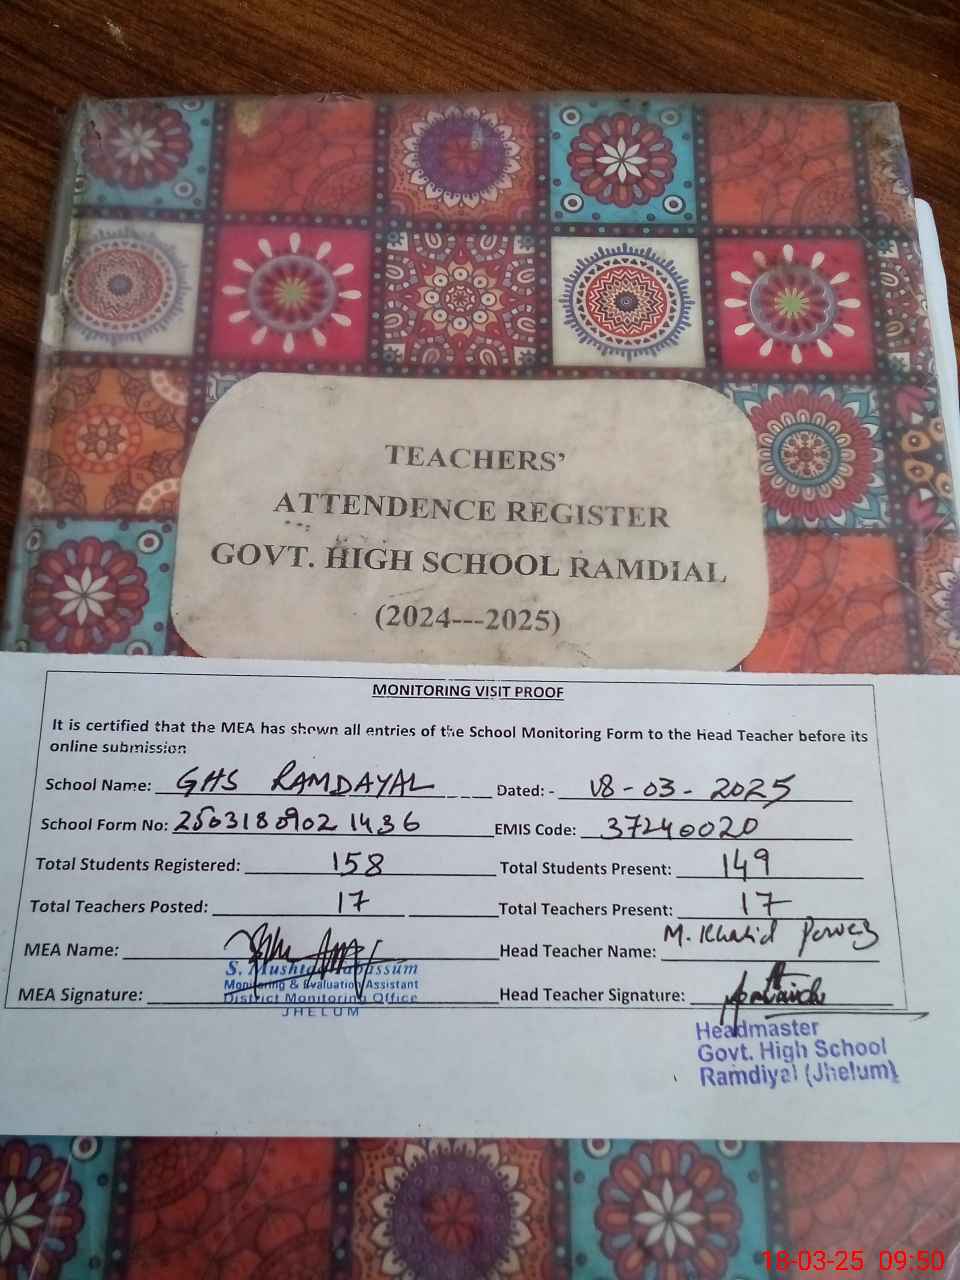 TEACHERS'
ATTENDENCE REGISTER
GOVT. HIGH SCHOOL RAMDIAL
(2024---2025)
MONITORING VISIT PROOF
It is certified that the MEA has shown all entries of the School Monitoring Form to the Head Teacher before its
online submission
School Name: GHS RAMDAYAL Dated: - 18-03-2025
School Form No: 25031809021436 EMIS Code: 37240020
Total Students Registered: 158 Total Students Present: 149
Total Teachers Posted: 17 Total Teachers Present: 17
MEA Name: Head Teacher Name: M. Khalid Pervez
S. Mushtaq Tabassum
Monitoring & Evaluation Assistant
MEA Signature: Head Teacher Signature:
District Monitoring Office
JHELUM
Headmaster
Govt. High School
Ramdiyal (Jhelum)
18-03-25 09:50